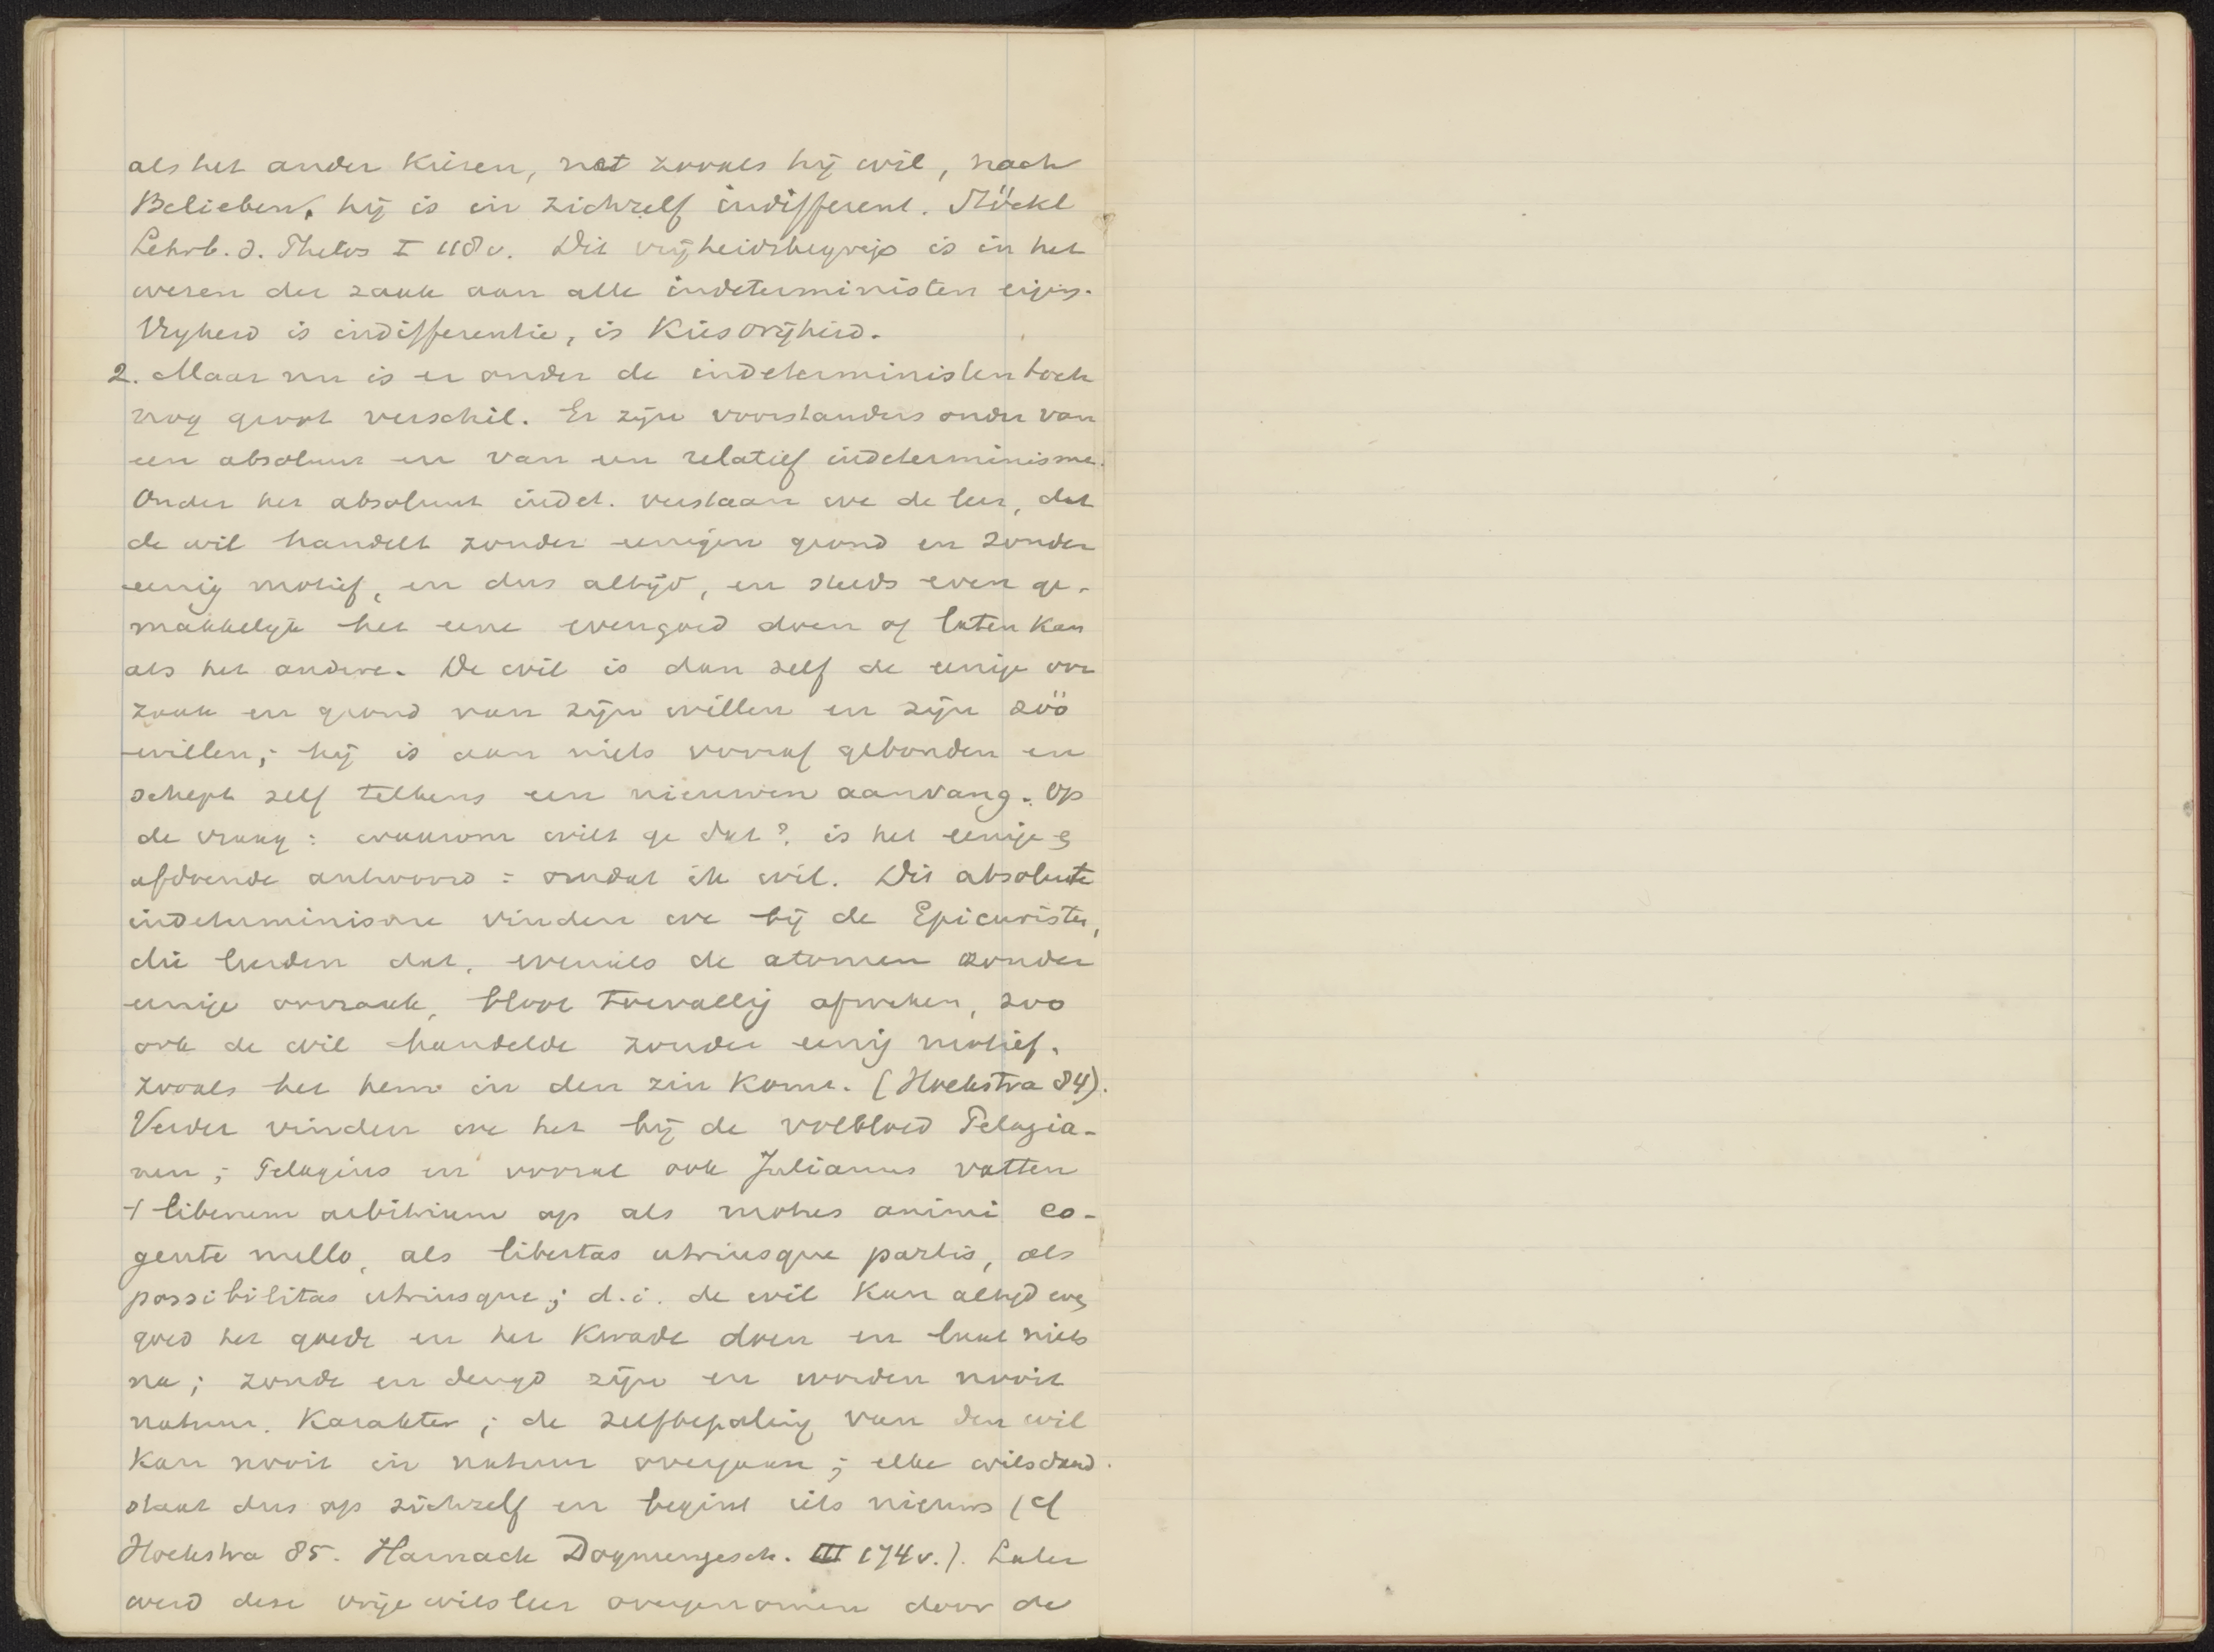 als het ander kiezen, net zooals hij wil, nach
Belieben, hij is in zichzelf indifferent. Stöckl
Lehrb. d. Philos I 118v. Dit vrijheidsbegrip is in het
wezen der zaak aan alle indeterministen eigen.
Vryheid is indifferentie, is Kiesvrijheid.
2. Maar nu is er onder de indeterministen toch
nog groot verschil. Er zijn voorstanders onder van
een absoluut en van een relatief indeterminisme.
Onder het absoluut indet. verstaan we de leer, dat
de wil handelt zonder eenigen grond en zonder
eenig motief, en dus altijd, en steeds even ge-
makkelyk het eene evengoed doen of laten kan
als het andere. De wil is dan zelf de eenige oor
zaak en grond van zijn willen en zijn zóó
willen; hij is aan niets vooraf gebonden en
schept zelf telkens een nieuwen aanvang. Op
de vraag: waarom wilt ge dat? is het eenige
afdoende antwoord = omdat ik wil. Dit absolute
indeterminisme vinden we bij de Epicuristen,
die leerden dat, evenals de atomen zonder
eenige oorzaak, bloot toevallig afweken, zoo
ook de wil handelde zonder eenig motief.
zooals het hem in den zin komt. (Hoekstra 84).
Verder vinden we het bij de volbloed Pelagia-
nen; Pelagius en vooral ook Julianus vatten
't liberum arbitrium op als motus animi co-
gente nullo, als libertas utriusque partis, als
possibilitas utriusque; d.i. de wil kan altijd even
goed het goede en het kwade doen en laat niets
na; zonde en deugd zijn en worden nooit
natuur. Karakter; de zelfbepaling van den wil
kan nooit in natuur overgaan; elke wilsdaad
staat dus op zichzelf en begint iets nieuws (cf
Hoekstra 85. Harnack Dogmengesch. III 174v.). Later
werd deze vrije wilsleer overgenomen door de